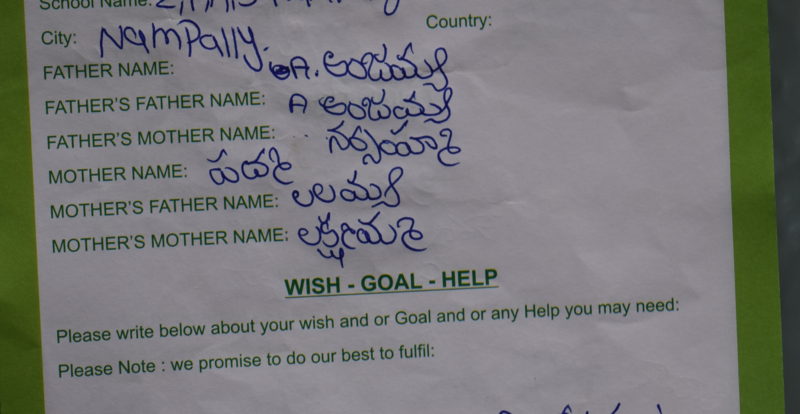 School Name:
City: NAMPAlly. Country:
FATHER NAME: A. అంజయ్య
FATHER'S FATHER NAME: A అంజయ్య
FATHER'S MOTHER NAME: నర్సయ్మ
MOTHER NAME: పద్మ
MOTHER'S FATHER NAME: లలయ్య
MOTHER'S MOTHER NAME: లక్ష్మయమ్మ
WISH - GOAL - HELP
Please write below about your wish and or Goal and or any Help you may need:
Please Note : we promise to do our best to fulfil: